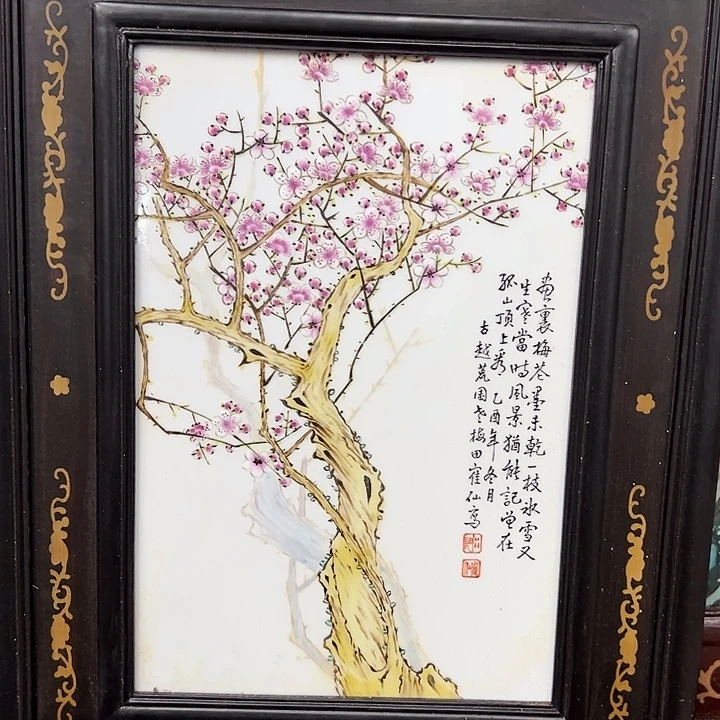 畫裏梅花墨未乾一枝氷雪又
生寒當時風景猶能記曾在
孤山頂上看 乙酉年冬月
古越荒園老梅田寉仙寫